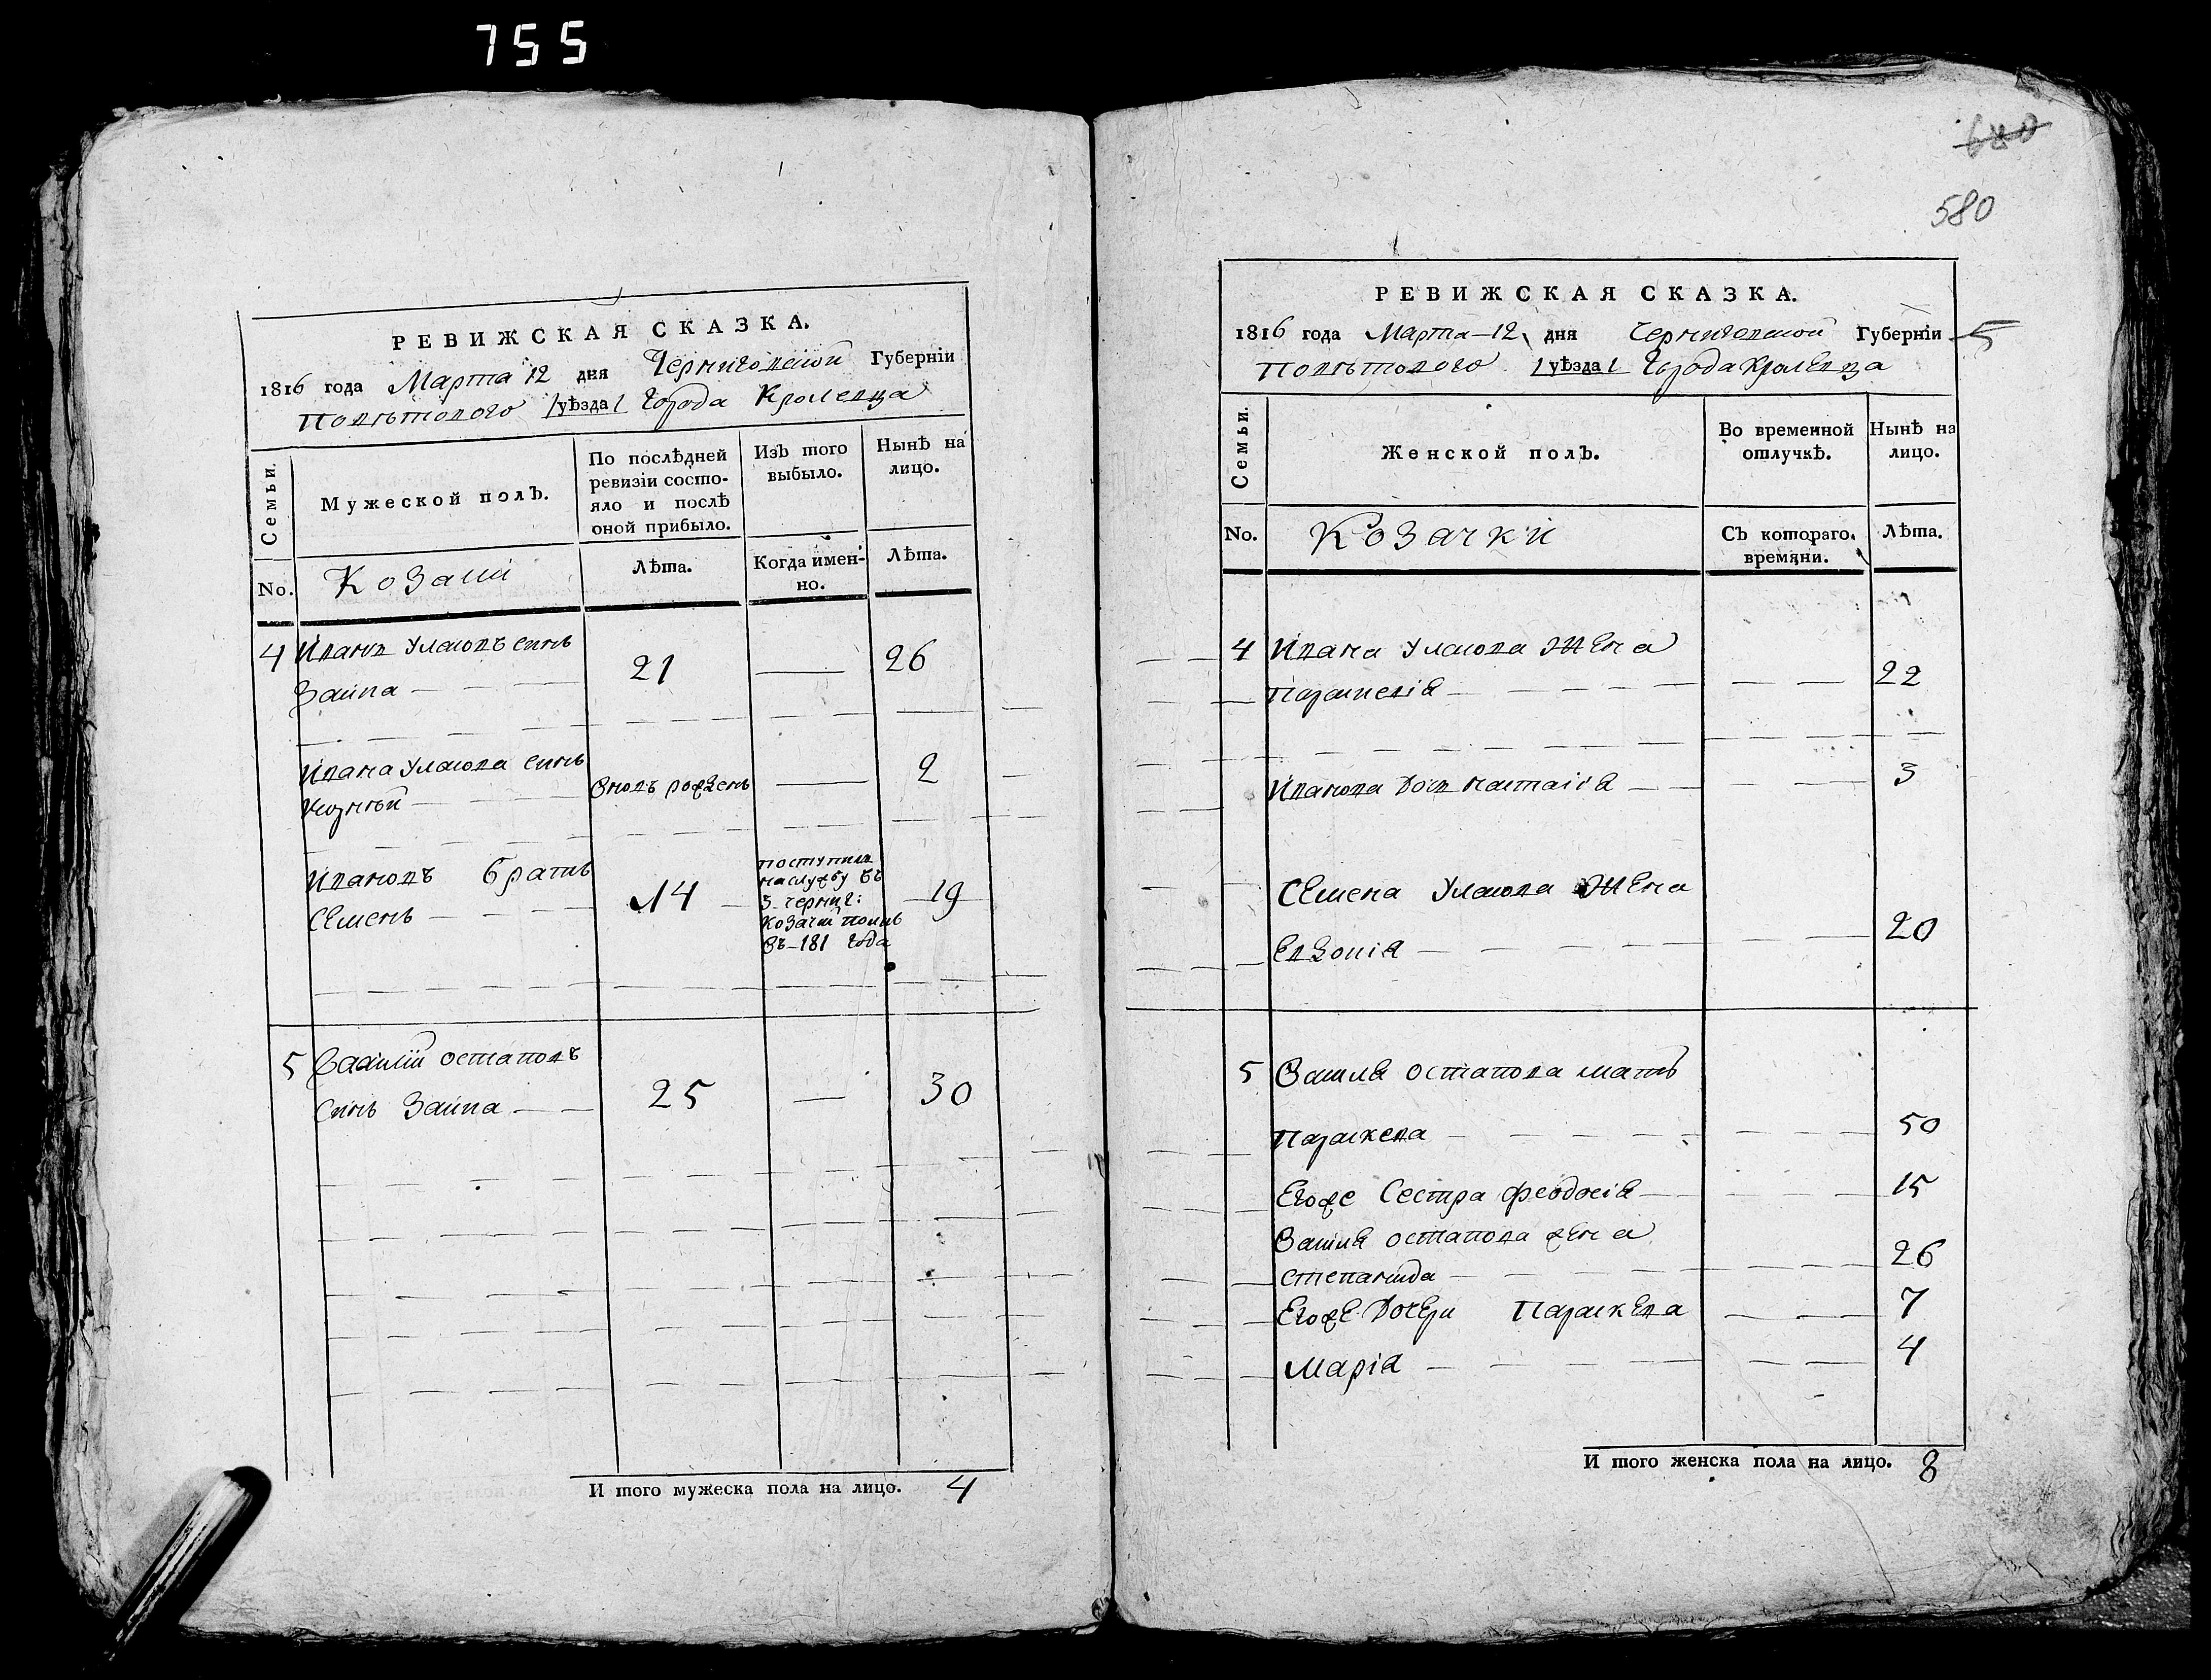 755
РЕВИЖСКАЯ СКАЗКА.
1816 года Марта 12 дня Черниговской Губерніи
Повѣтового /уѣзда/ Города Кролевца
Семьи.
Мужеской полъ.
По послѣдней
ревизіи состо-
яло и послѣ
оной прибыло.
Изъ того
выбыло.
Нынѣ на
лицо.
No.
Козаки
Лѣта.
Когда имен-
но.
Лѣта.
4 Иванъ Уласовъ синъ
Заика 21 26
Ивана Уласова синъ
вновъ рожденъ 2
Ивановъ братъ
Семенъ 14 19
поступилъ
наслужбу въ
3. черниг:
козачій полкъ
въ 181 года
5 Василій Остаповъ
синъ Заика 25 30
И того мужеска пола на лицо. 4
640
580
РЕВИЖСКАЯ СКАЗКА.
1816 года Марта 12 дня Черниговской Губерніи 5
Повѣтового /уѣзда/ Города Кролевца
Семьи.
Женской полъ.
Во временной
отлучкѣ.
Нынѣ на
лицо.
No.
Козачки
Съ котораго
времяни.
Лѣта.
4 Ивана Уласова жена
22
Иванова дочь Настасія 3
Семена Уласова жена
Евдокія 20
5 Василя Остапова мать
Параскева 50
Егоже сестра Феодосія 15
Василя Остапова жена
Степанида 26
Егоже дочери Параскева 7
Марія 4
И того женска пола на лицо. 8